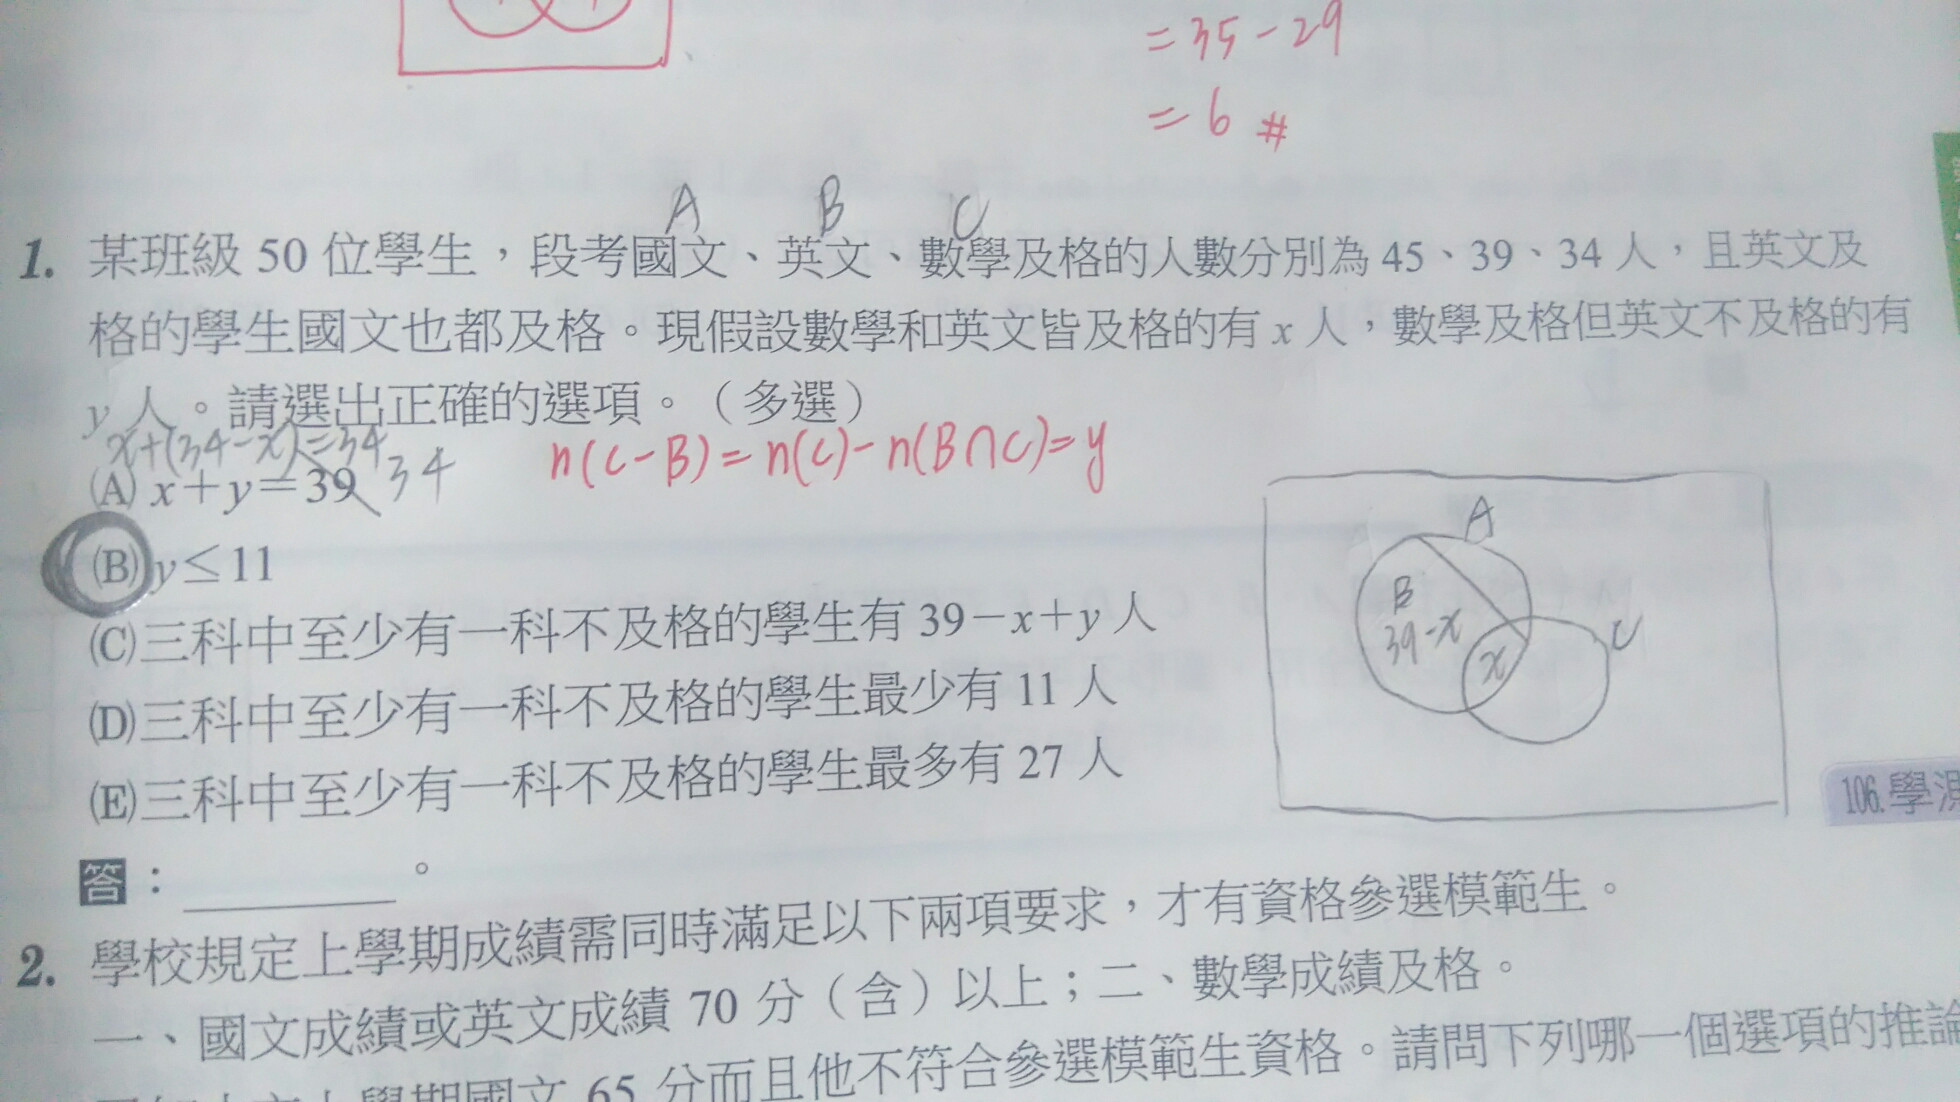 =35-29
=6 #
A B C
1. 某班級 50 位學生，段考國文、英文、數學及格的人數分別為 45、39、34 人，且英文及
格的學生國文也都及格。現假設數學和英文皆及格的有 x 人，數學及格但英文不及格的有
y 人。請選出正確的選項。（多選）
x+(34-x)=34
n(C-B)=n(C)-n(B∩C)=y
(A) x+y=39 34
(B) y≤11
(C)三科中至少有一科不及格的學生有 39-x+y 人
(D)三科中至少有一科不及格的學生最少有 11 人
(E)三科中至少有一科不及格的學生最多有 27 人
A
B
39-x
x
C
106.學測
答：。
2. 學校規定上學期成績需同時滿足以下兩項要求，才有資格參選模範生。
一、國文成績或英文成績 70 分（含）以上；二、數學成績及格。
上學期國文 65 分而且他不符合參選模範生資格。請問下列哪一個選項的推論